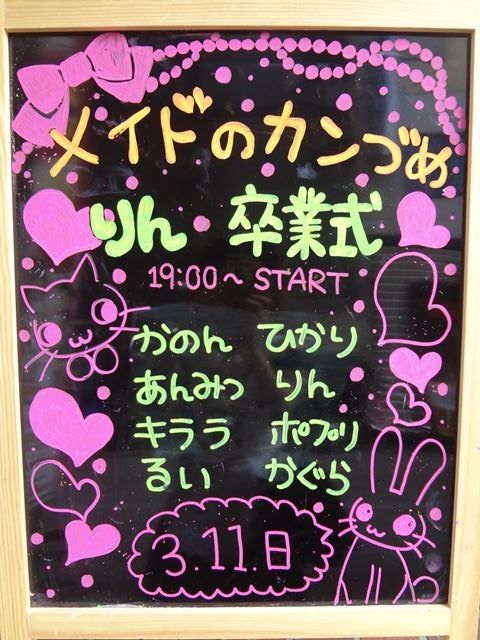 メイドのカンづめ
りん 卒業式
19:00～ START
かのん ひかり
あんみつ りん
キララ ポプリ
るい かぐら
3.11.日